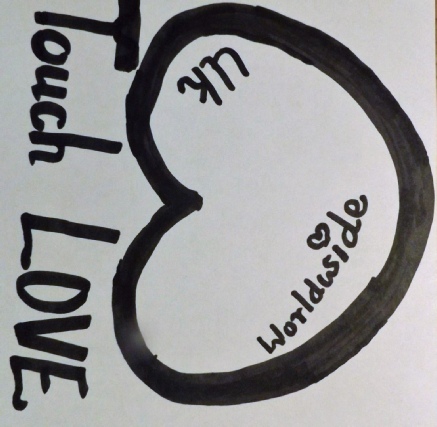 Touch LOVE
UK
Worldwside